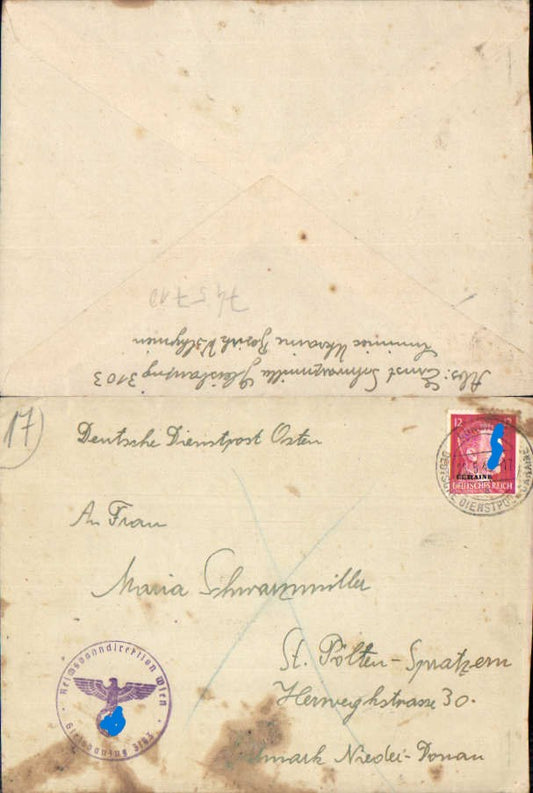 74571D
Abs: Ernst Schwarzmüller Gleisbauzug 3103
Ukraine Bezirk Wolhynien
17)
Deutsche Dienstpost Osten
12
UKRAINE
DEUTSCHES REICH
DEUTSCHE DIENSTPOST UKRAINE
An Frau
Maria Schwarzmüller
St. Pölten-Spratzern
Herweghstrasse 30.
Ostmark Nieder-Donau
Reichsbahndirektion Wien